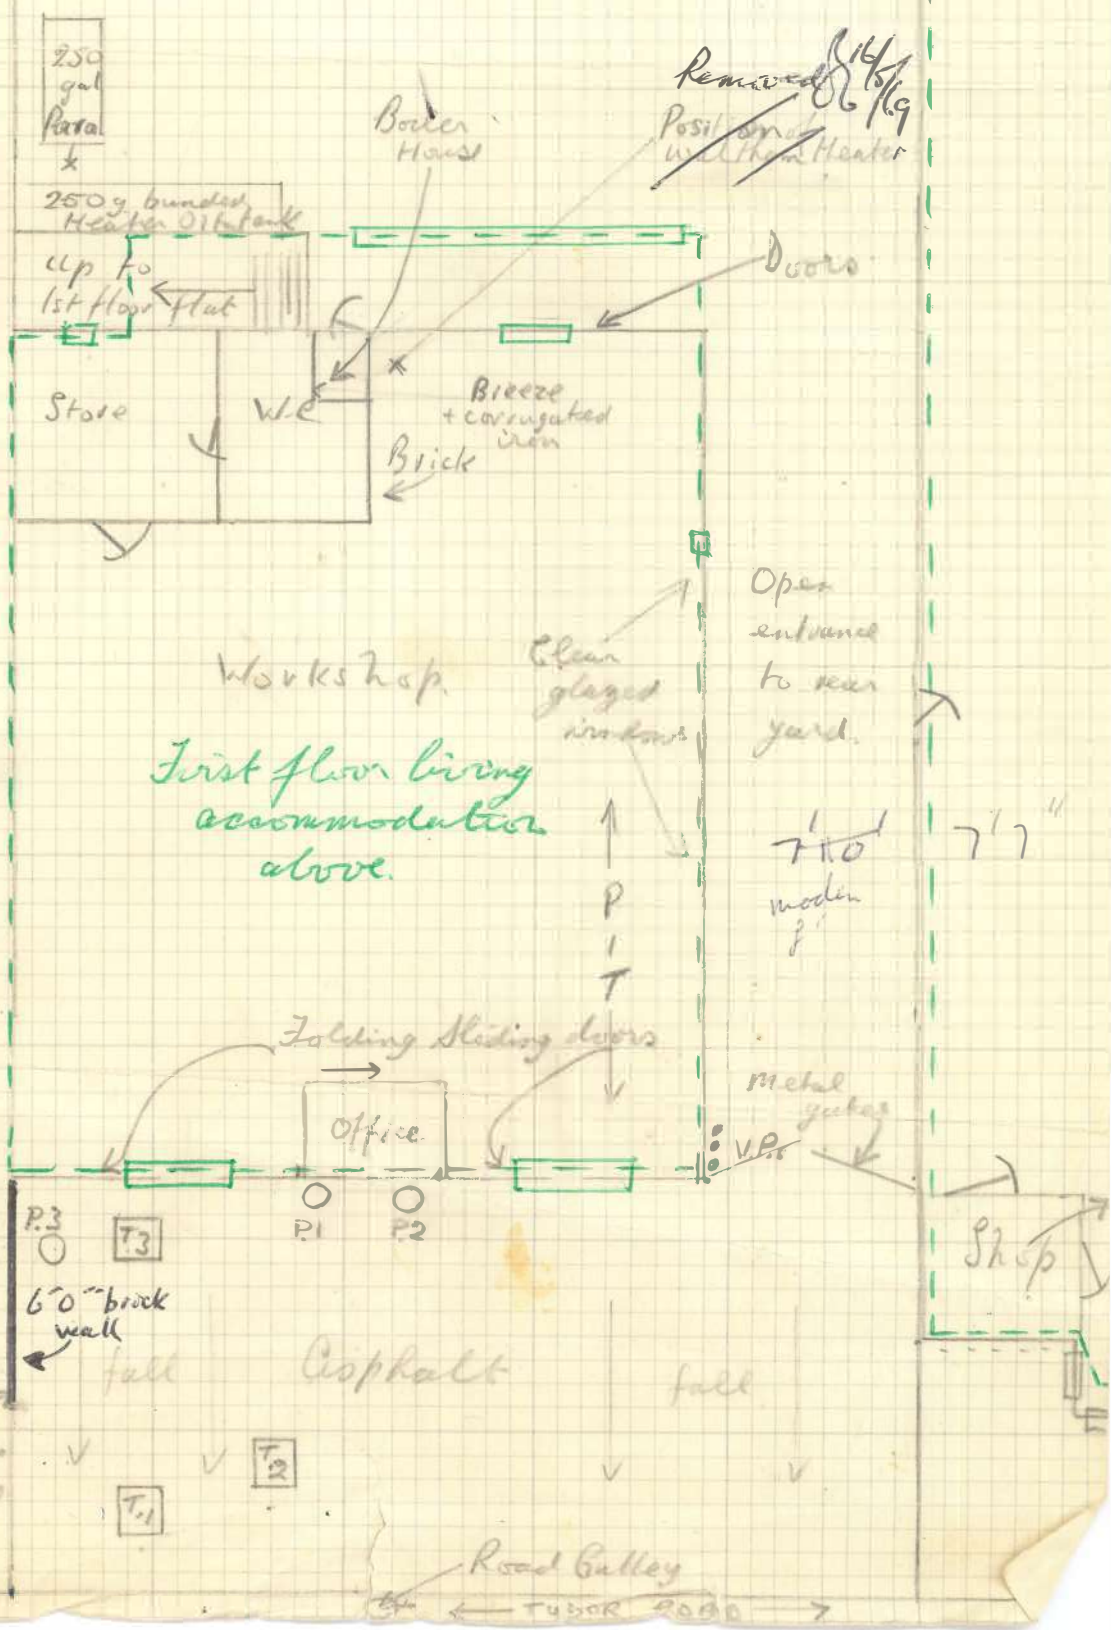 250
gal
Para
250 g bunded
Heater Oil tank
up to
1st floor flat
Boiler
House
Removed 16/5/69
Position of
Heater
Doors
Store
W.C
Breeze
+ corrugated
iron
Brick
Workshop.
Clear
glazed
windows
Open
entrance
to rear
yard.
First floor living
accommodation
above.
P
I
T
7'7"
Folding Sliding doors
Office
Metal
gates
V.P.s
P.3
T3
P.1
P.2
6'0" brick
wall
Shop
fall
Asphalt
fall
T2
T.1
Road Gulley
TUDOR ROAD